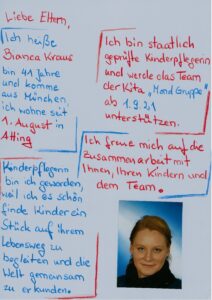 Liebe Eltern,
Ich heiße
Bianca Kraus
bin 41 Jahre
und komme
aus München,
ich wohne seit
1. August in
Alling
Kinderpflegerin
bin ich geworden,
weil ich es schön
finde Kinder ein
Stück auf ihrem
Lebensweg zu
begleiten und die
Welt gemeinsam
zu erkunden.
Ich bin staatlich
geprüfte Kinderpflegerin
und werde das Team
der Kita „Mond Gruppe"
ab 1.9.21
unterstützen.
Ich freue mich auf die
Zusammenarbeit mit
Ihnen, Ihren Kindern und
dem Team.